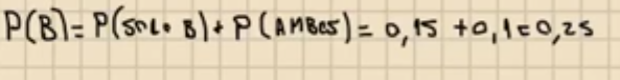 P(B)=P(SOLO B)+P(AMBOS)=0,15+0,1=0,25